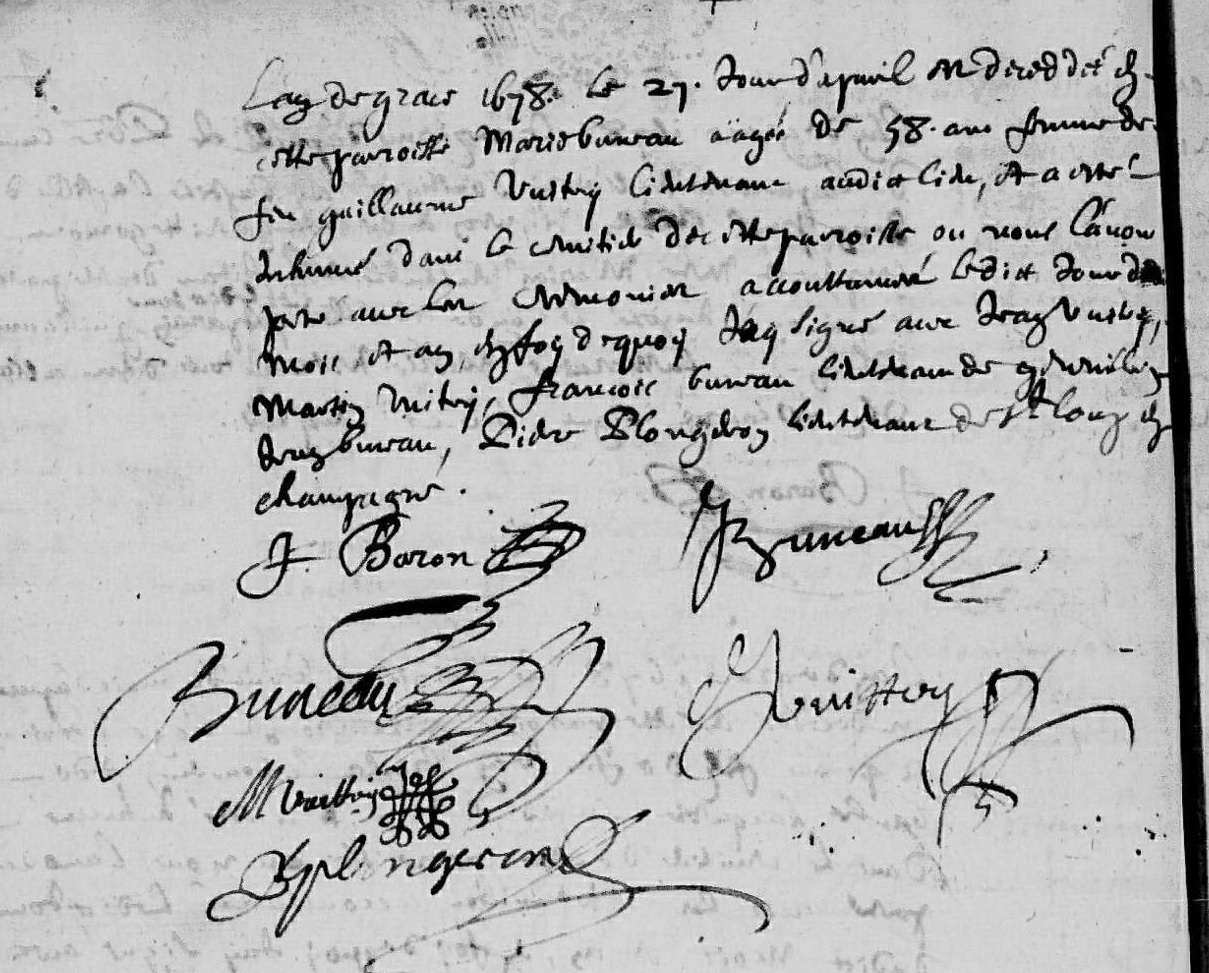 Lan de grace 1678. le 27. Jour d'apvril est deceddée en
cette parroisse Marie buneau aagée de 58. ans femme de
feu guillaume Vuitry lieutenant audict lieu, et a esté
Inhumé dans le cimitiere de cette parroisse ou nous l'avons
porté avec les ceremonies accouttumées ledict Jour
mois et an, en foy de quoy Jay signé avec Jean Vuitry,
Martin Vuitry, francois buneau lieutenant de
Jean buneau, Pierre Plongeron lieutenant de st. loup en
champagne.
J. Baron
J Buneau
Buneau
J vuittry
M Vuittry
P plongeron